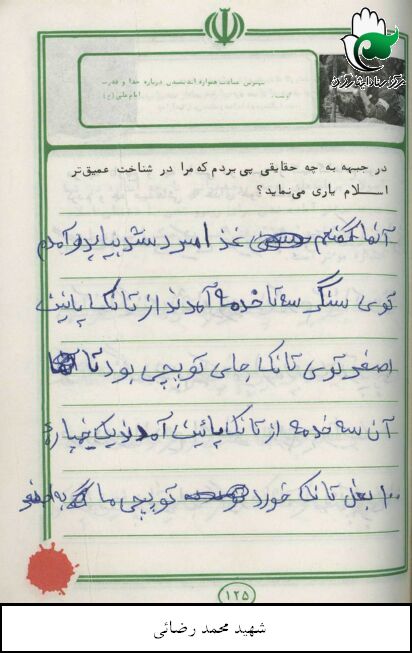 مرکز اسناد ایثارگران
بهترین عبادت همواره اندیشیدن درباره خدا و قدرت
اوست. امام علی (ع)
در جبهه به چه حقایقی پی بردم که مرا در شناخت عمیق‌تر
اسلام یاری می‌نماید؟
آنها گفتم غذا سرد شد بیایید و آمدم
توی سنگر سه تا خدمه آمدند از تانک پائین
اصغر توی تانک جای توپچی بود تا
آن سه خدمه از تانک پائین آمدند یک خپاره
بغل تانک خورد توپچی ما به اصغر
۱۲۵
شهید محمد رضائی